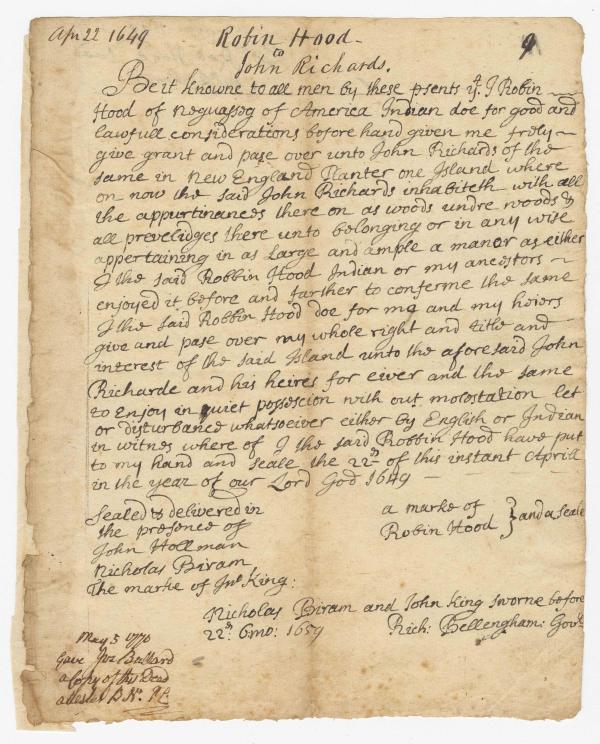 Apr 22 1649
Robin Hood
to
John Richards.
9
Be it knowne to all men by these psents yt. I Robin
Hood of Neguasseg of America Indian doe for good and
lawfull considerations before hand given me frely
give grant and pase over unto John Richards of the
same in New England Planter one Island where
on now the said John Richards inhabiteth with all
the appurtinances there on as woods undre woods &
all prevelidges there unto belonging or in any wise
appertaining in as Large and ample a manor as either
I the said Robbin Hood Indian or my ancestors
enjoyed it before and farther to conferme the same
I the said Robbin Hood doe for me and my heiers
give and pase over my whole right and title and
interest of the said Island unto the afore said John
Richarde and his heires for eiver and the same
to Enjoy in quiet possescion with out molostation let
or disturbance whatsoeiver either by English or Indian
in witnes where of I the said Robbin Hood have put
to my hand and seale the 22th of this instant Aprill
in the year of our Lord God 1649
Sealed & delivered in
the presence of
John Hollman
Nicholas Biram
The marke of Jno King:
a marke of
Robin Hood } and a seale
Nicholas Biram and John King sworne before
22th: 6mo: 1659 Rich: Bellengham: Govr
May 5 1770
Gave Joz Ballard
a Copy of this Deed